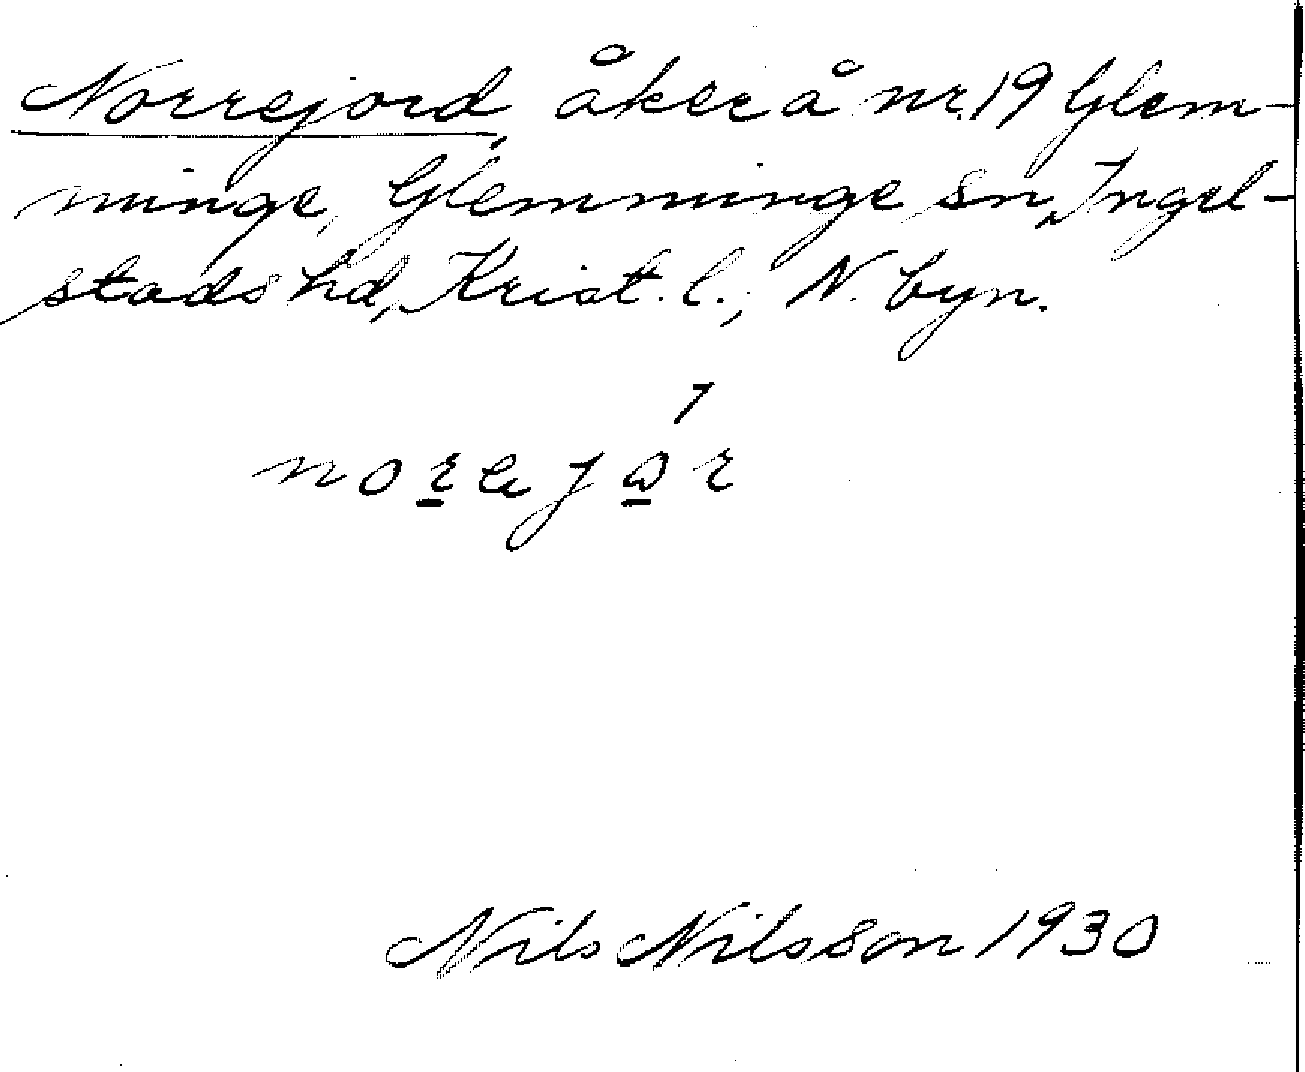 Norrejord, åker å nr 19 Glem-
minge, Glemminge sn, Ingel-
stads hd, Krist. l., N. byn.
Nils Nilsson 1930